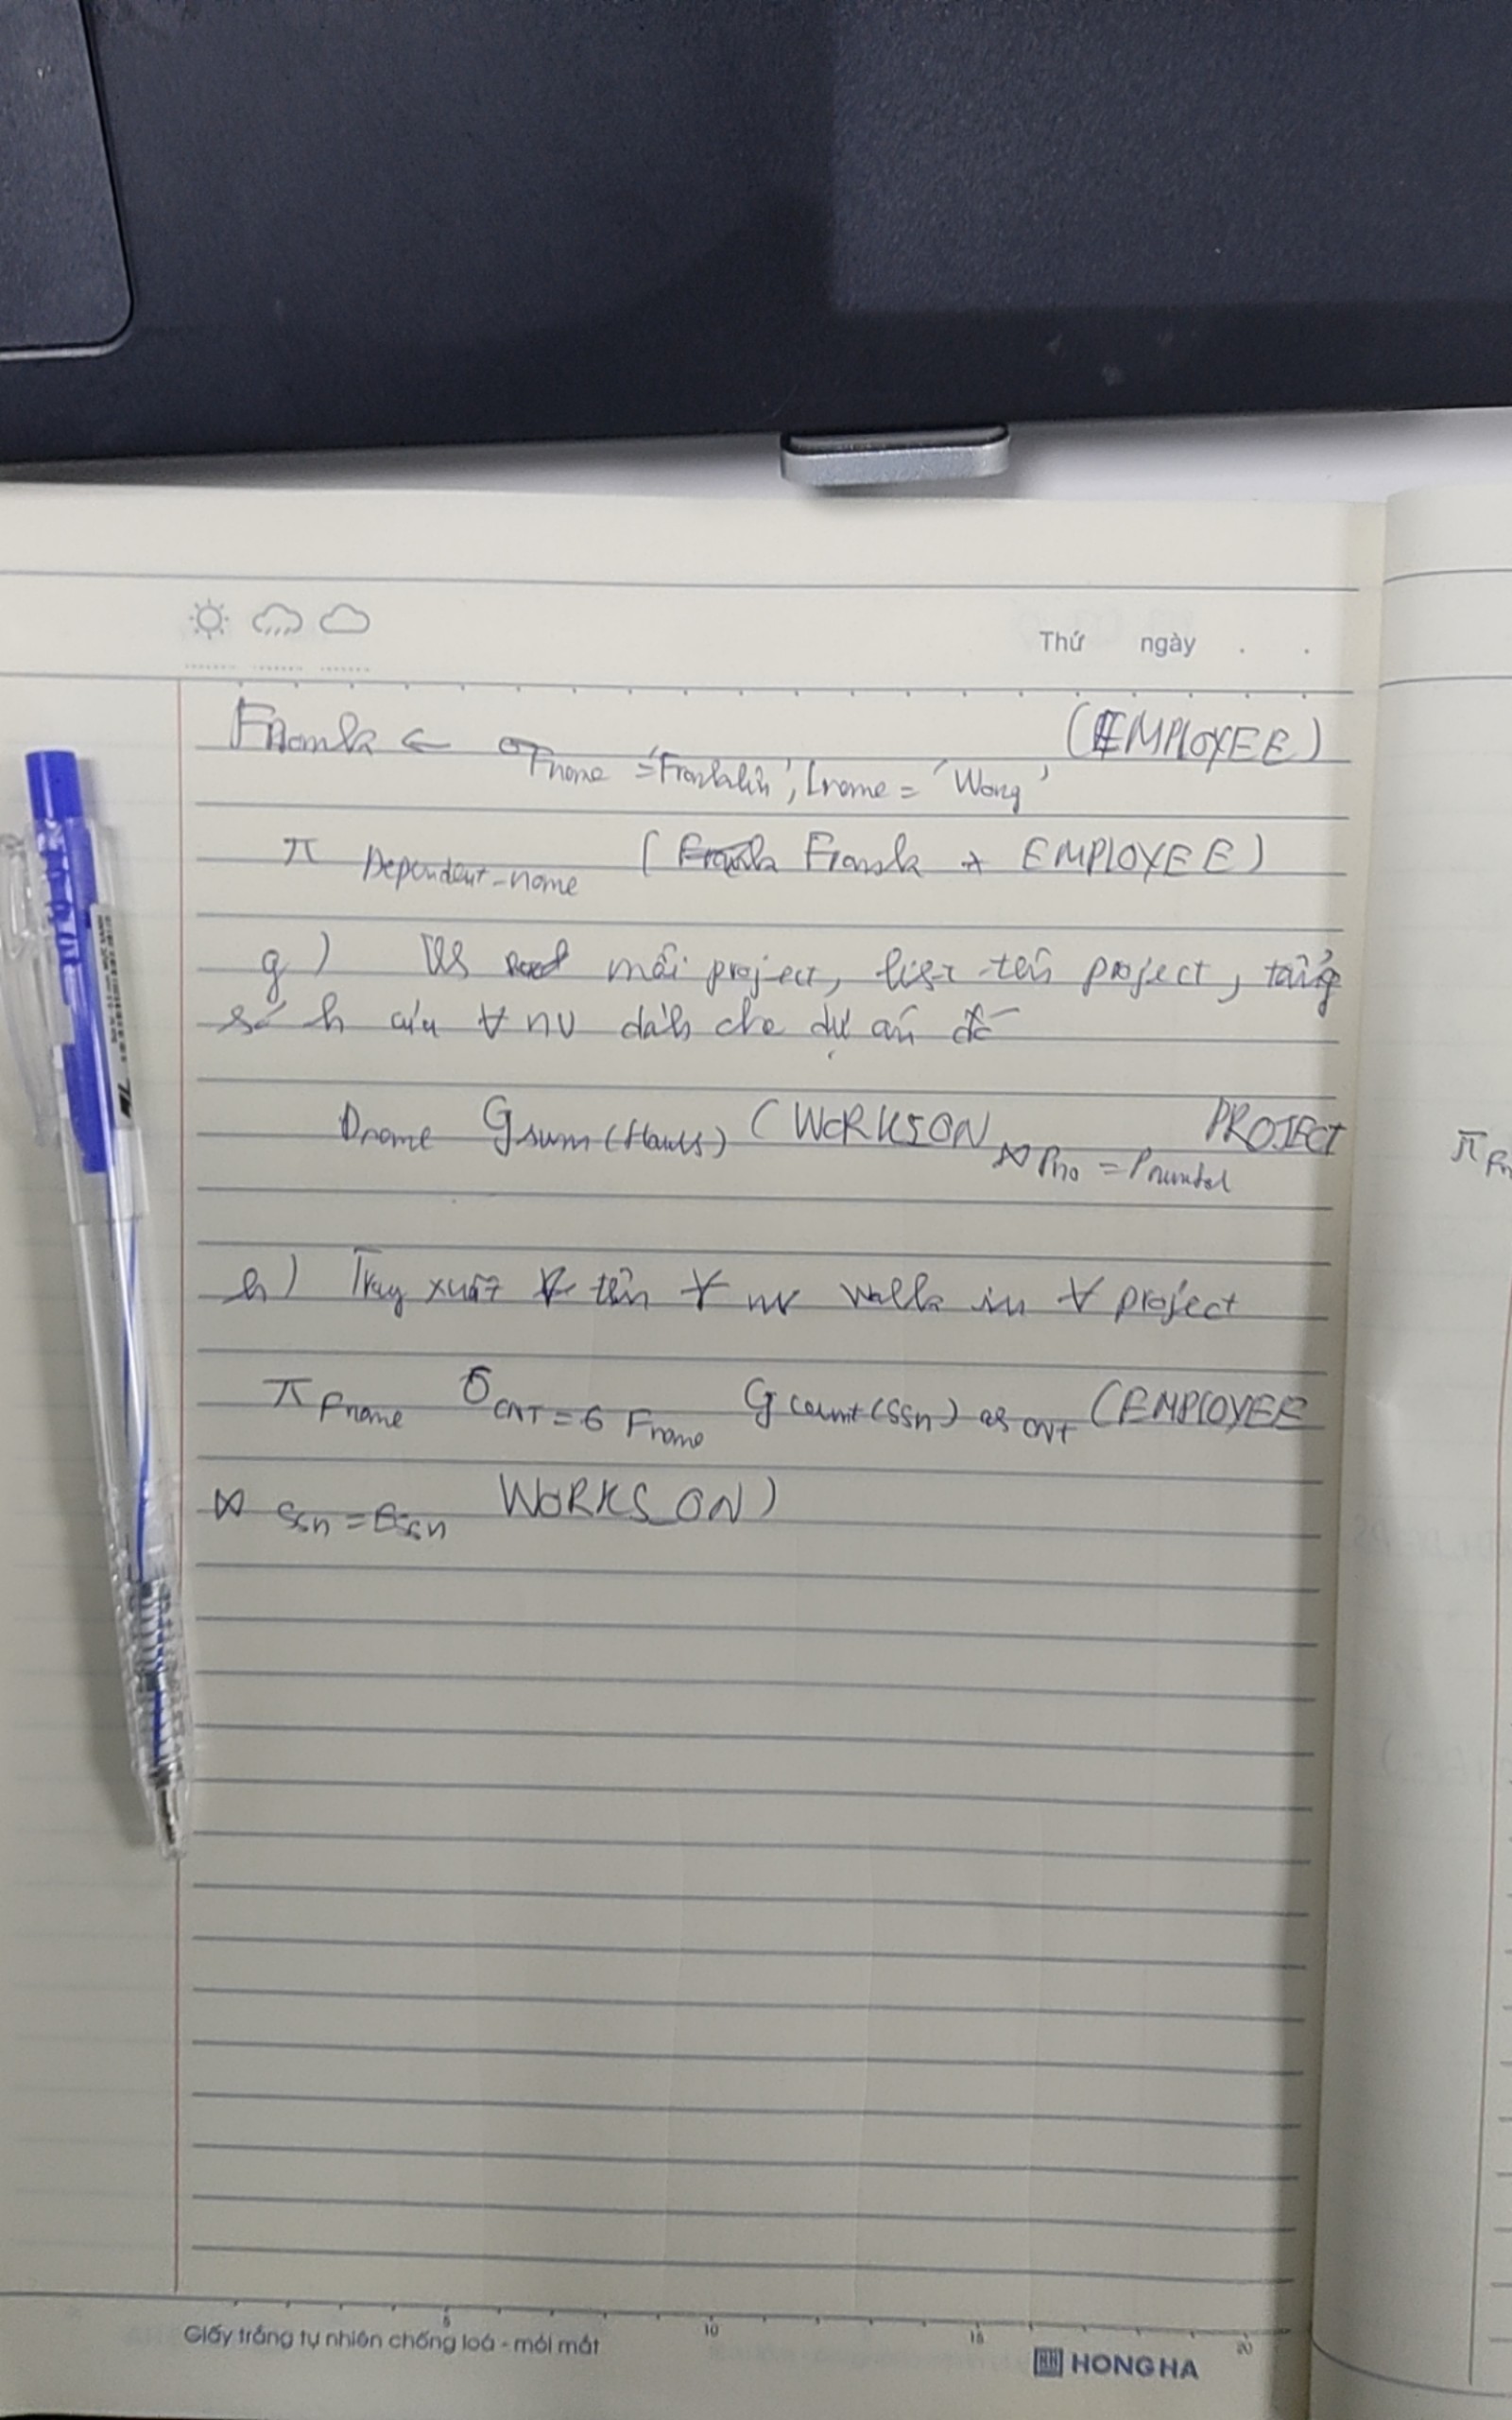 Thứ ngày . .
Frank ← σ Fname = 'Franklin', Lname = 'Wong' (EMPLOYEE)
π Dependent_name (Frank * EMPLOYEE)
g) mỗi project, list tên project, tổng
số h của ∀ nv dành cho dự án đó
Dname G sum(Hours) (WORKSON ⋈ Pno = Pnumber PROJECT
h) Truy xuất tên ∀ nv work in ∀ project
π Fname σ CNT = 6 Fname G count(Ssn) as CNT (EMPLOYEE
⋈ Ssn = Essn WORKS_ON)
5 10 15 20
Giấy trắng tự nhiên chống loá - mỏi mắt
HH HONG HA